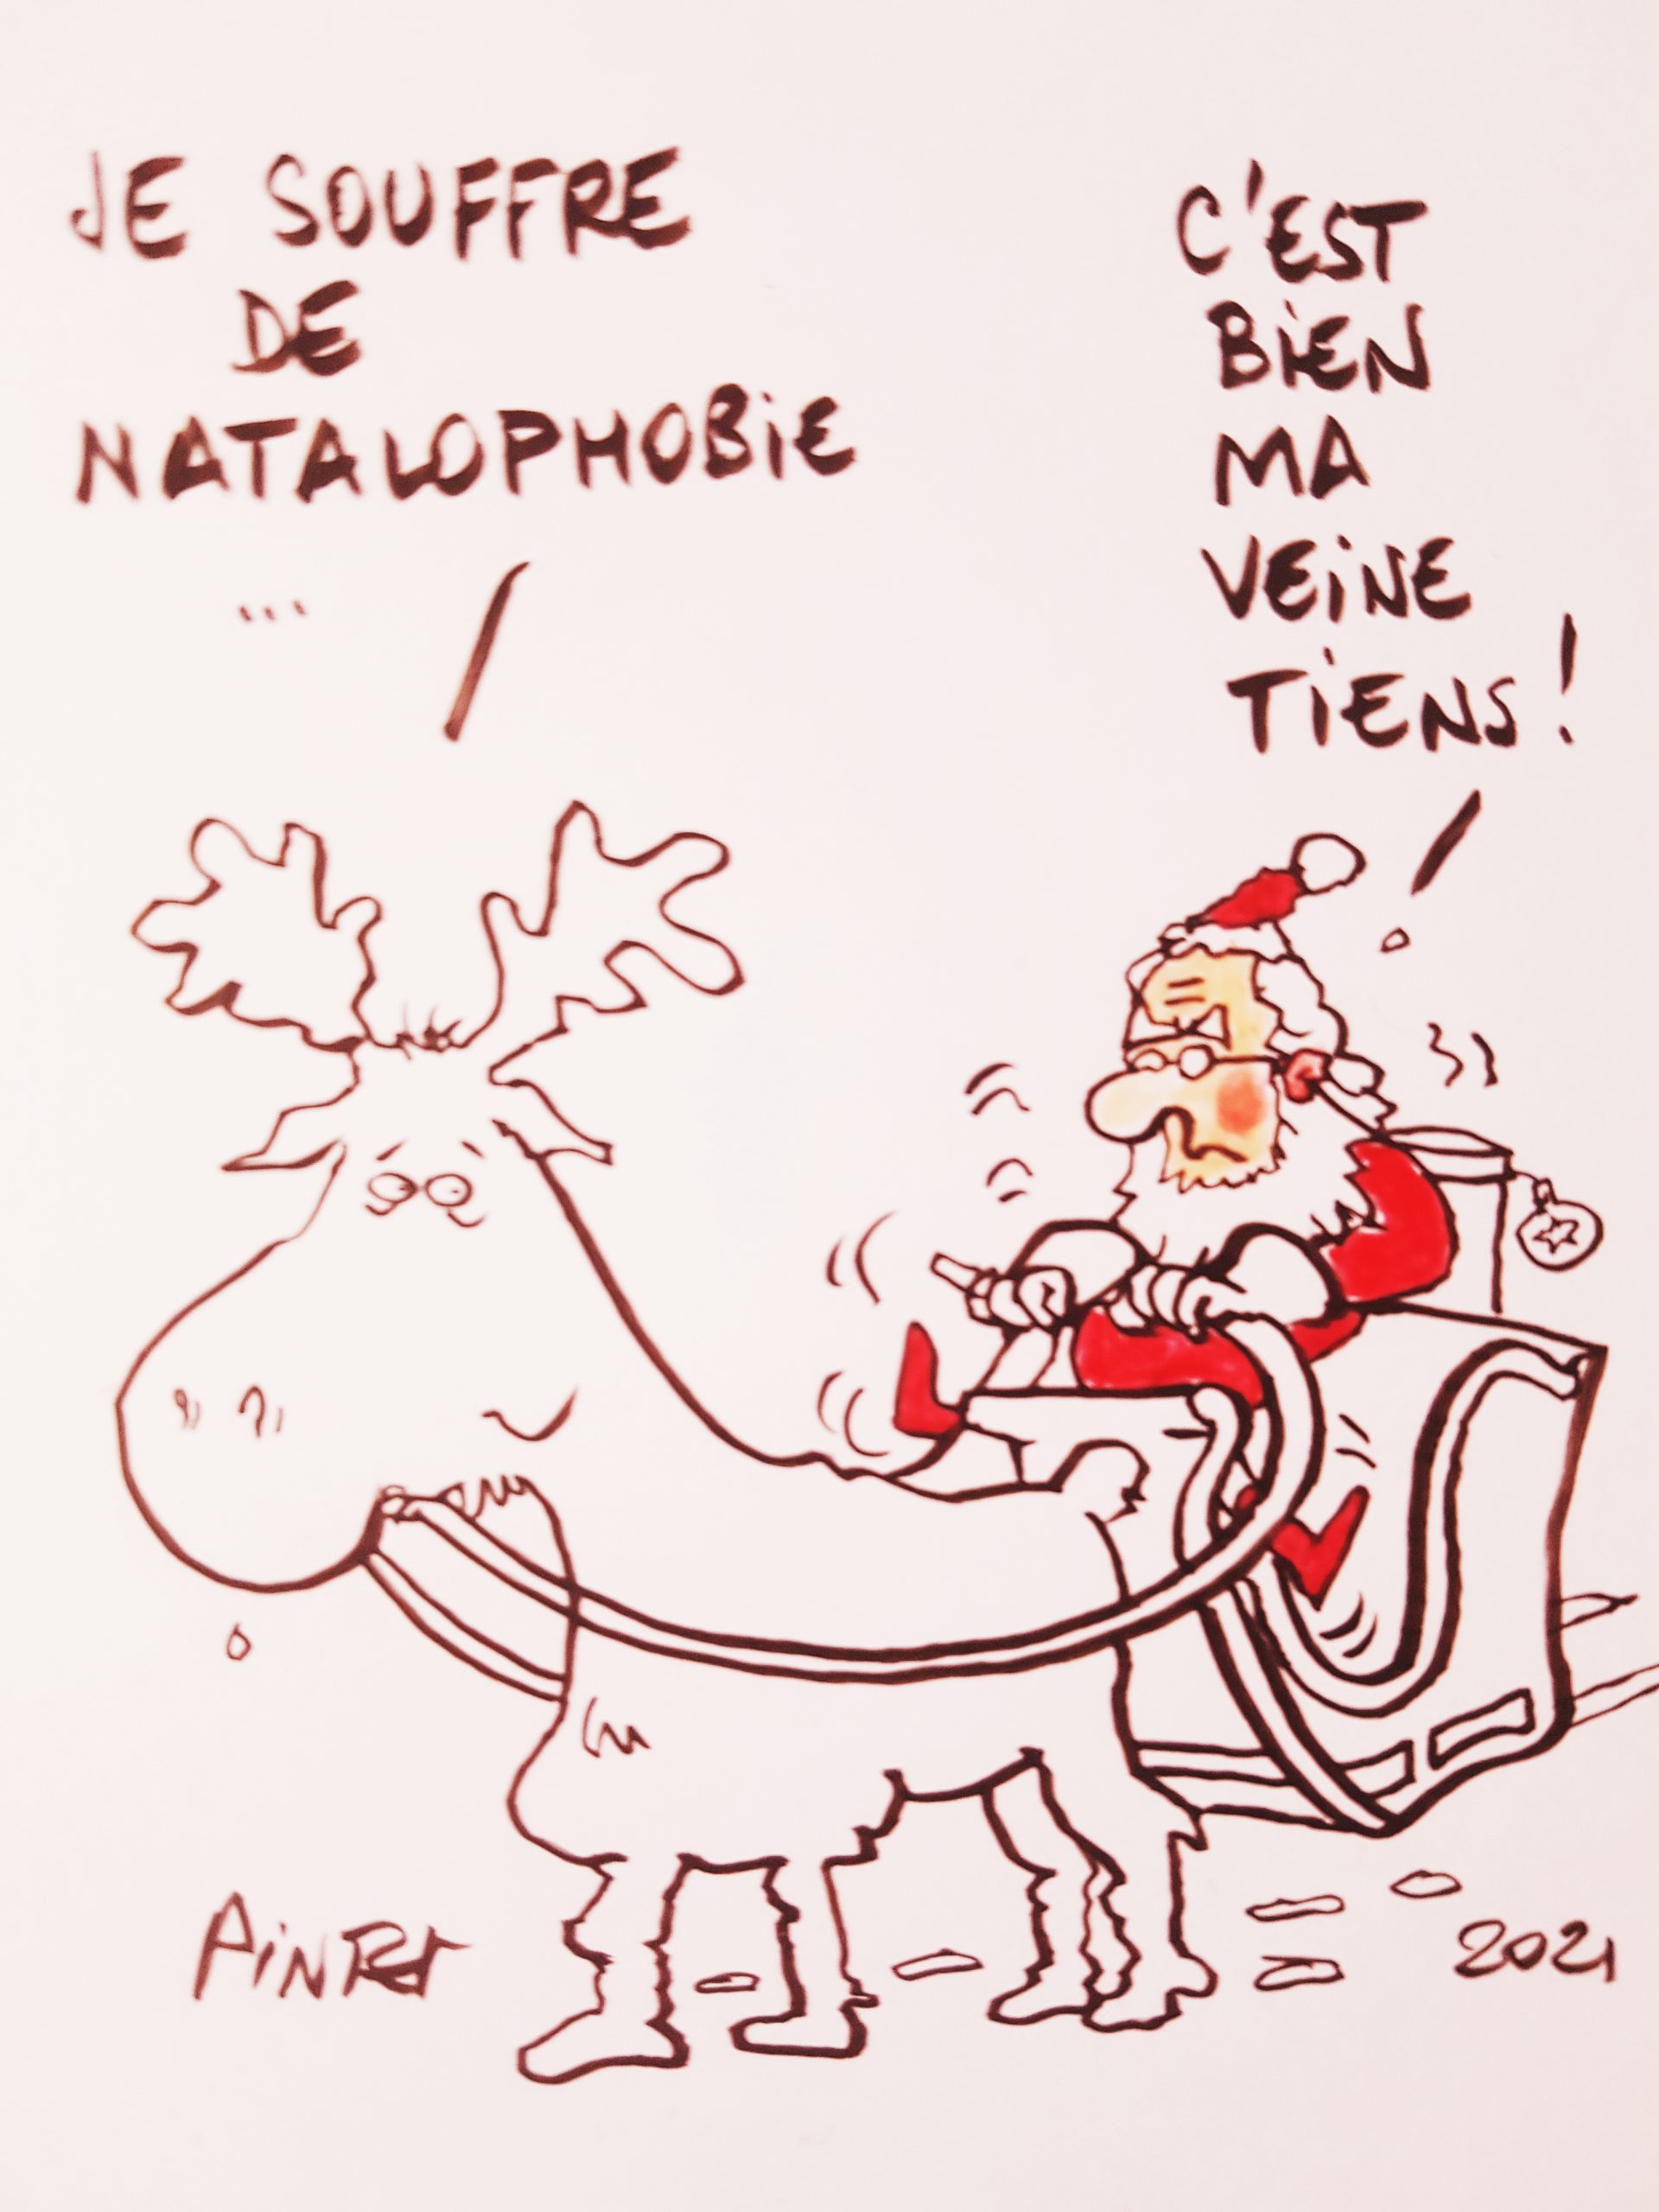 JE SOUFFRE
DE
NATALOPHOBIE
...
C'EST
BIEN
MA
VEINE
TIENS!
2021